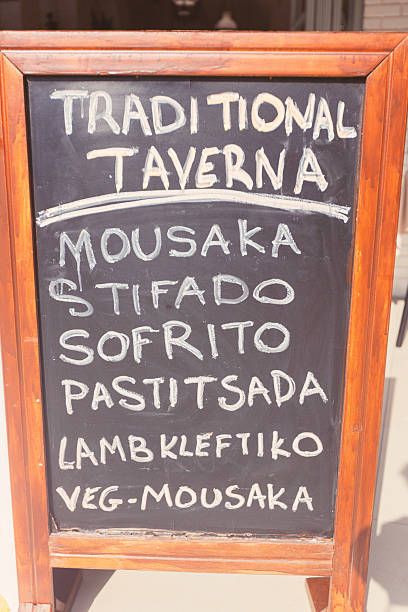 TRADITIONAL
TAVERNA
MOUSAKA
STIFADO
SOFRITO
PASTITSADA
LAMB KLEFTIKO
VEG-MOUSAKA